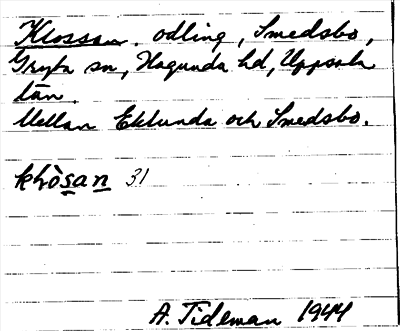 Klossan, odling, Smedsbo,
Gryta sn, Hagunda hd, Uppsala
län.
Mellan Eklunda och Smedsbo.
31
A. Tideman 1944